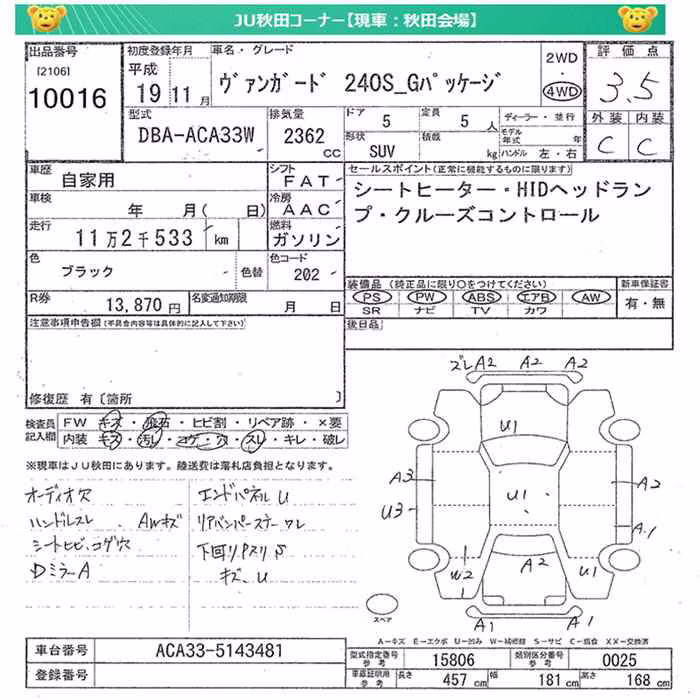 JU秋田コーナー【現車:秋田会場】
出品番号
[2106]
10016
初度登録年月
平成
19 11 月
車名・グレード
ヴァンガード 240S_Gパッケージ
2WD
4WD
評価点
3.5
外装 内装
C C
型式
DBA-ACA33W
排気量
2362
CC
ドア
5
定員
5 人
形状
SUV
積載
kg
ディーラー・並行
モデル年式 年
ハンドル 左・右
車歴
自家用
シフト
FAT
車検
年 月( 日)
冷房
AAC
走行
11万2千533 km
燃料
ガソリン
色
ブラック
色替
色コード
202
R券
13,870 円
名変通知期限
月 日
セールスポイント(正常に機能するものに限ります)
シートヒーター・HIDヘッドラン
プ・クルーズコントロール
装備品 (純正品に限り○をつけてください)
PS PW ABS エアB AW
SR ナビ TV カワ
新車保証書
有・無
後日品
注意事項申告欄(不具合内容等は具体的に記入して下さい)
修復歴 有〔箇所 〕
検査員
記入欄
FW キズ・飛石・ヒビ割・リペア跡・×要
内装 キズ・汚レ・コゲ・穴・スレ・キレ・破レ
※現車はJU秋田にあります。陸送費は落札店負担となります。
オーディオ穴
ハンドルスレ AWキズ
シートヒビ、コゲ穴
Dミラー A
エンドパネルU
リアバンパーステー ワレ
下回りPスリ S
キズ、U
ズレ A2 A2 A2
U1
A3
U3
U1
A2
A1
W2
A2
U1
A1 A1
スペア
A-キズ E-エクボ U-凹み W-補修跡 S-サビ C-腐食 XX-交換済
車台番号
ACA33-5143481
登録番号
型式指定番号
参考
15806
類別区分番号
参考
0025
車庫証明用
参考
長さ
457 cm
幅
181 cm
高さ
168 cm